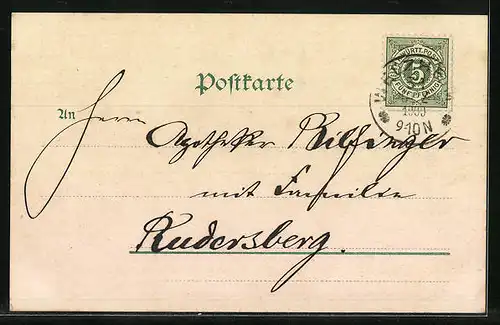 K. WÜRTT. POST
5
FÜNF PFENNIG
9-10 N
Postkarte
An Herrn
Apotheker Bilfinger
mit Familie
Rudersberg.